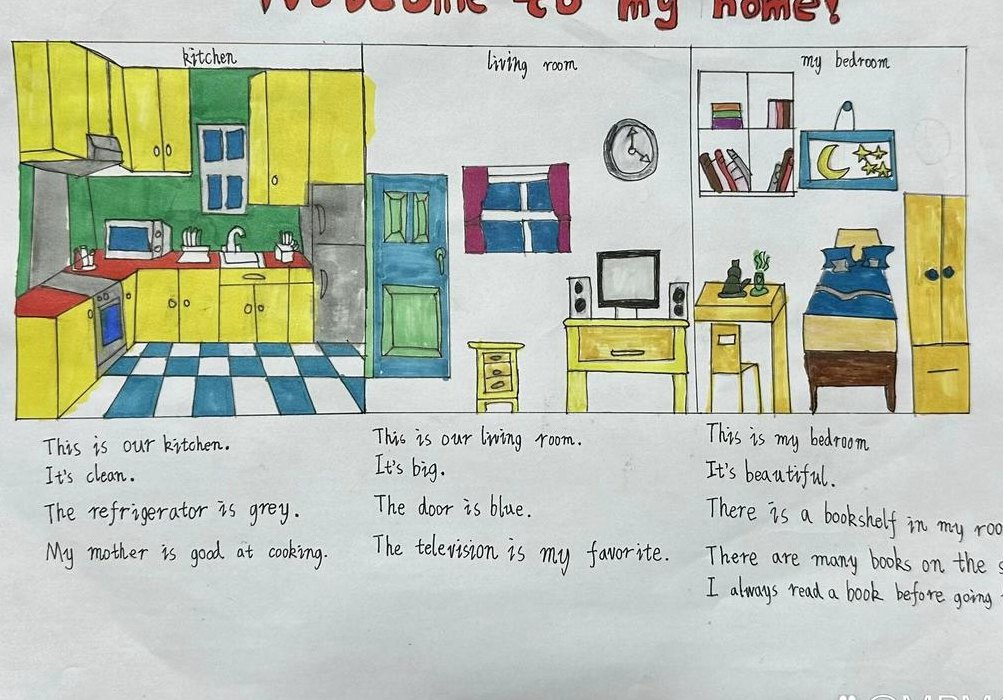 Welcome to my home!
kitchen
living room
my bedroom
This is our kitchen.
It's clean.
The refrigerator is grey.
My mother is good at cooking.
This is our living room.
It's big.
The door is blue.
The television is my favorite.
This is my bedroom
It's beautiful.
There is a bookshelf in my
There are many books on the
I always read a book before going